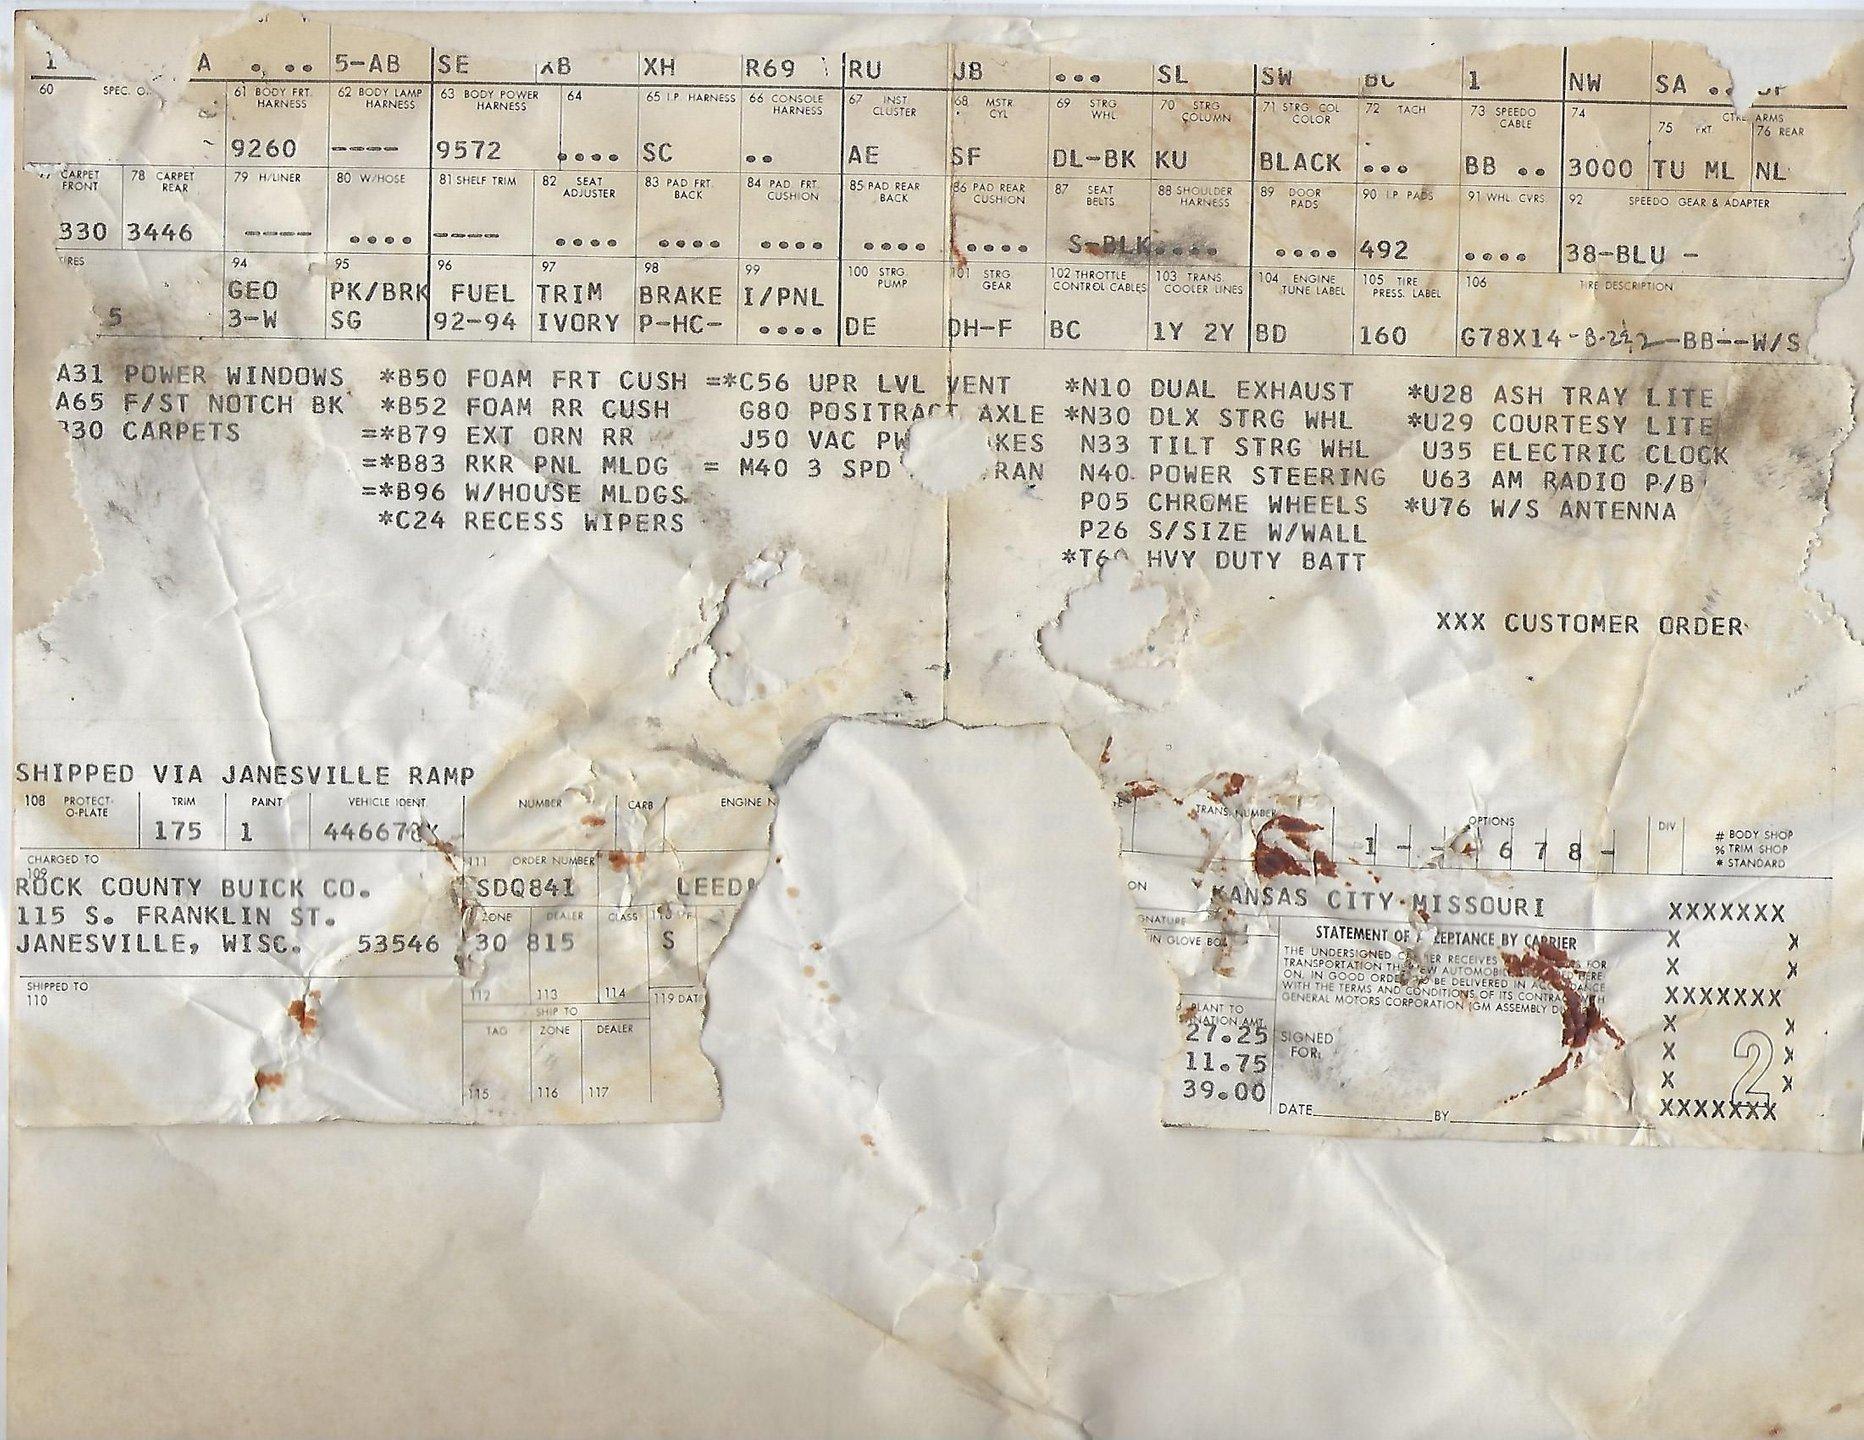 1 A . .. 5-AB SE XH R69 RU SL SW 1 NW SA
60 SPEC. 61 BODY FRT. HARNESS 62 BODY LAMP HARNESS 63 BODY POWER HARNESS 64 65 I.P. HARNESS 66 CONSOLE HARNESS 67 INST CLUSTER 68 MSTR CYL 69 STRG WHL 70 STRG COLUMN 71 STRG COL COLOR 72 TACH 73 SPEEDO CABLE 74 75 FRT ARMS 76 REAR
9260 ---- 9572 .... SC .. AE SF DL-BK KU BLACK ... BB .. 3000 TU ML NL
CARPET FRONT 78 CARPET REAR 79 H/LINER 80 W/HOSE 81 SHELF TRIM 82 SEAT ADJUSTER 83 PAD FRT. BACK 84 PAD FRT. CUSHION 85 PAD REAR BACK 86 PAD REAR CUSHION 87 SEAT BELTS 88 SHOULDER HARNESS 89 DOOR PADS 90 I.P PADS 91 WHL CVRS 92 SPEEDO GEAR & ADAPTER
330 3446 ---- .... ---- .... .... .... .... .... S-BLK.... .... 492 .... 38-BLU -
94 95 96 97 98 99 100 STRG PUMP 101 STRG GEAR 102 THROTTLE CONTROL CABLES 103 TRANS. COOLER LINES 104 ENGINE TUNE LABEL 105 TIRE PRESS. LABEL 106 TIRE DESCRIPTION
GEO PK/BRK FUEL TRIM BRAKE I/PNL
5 3-W SG 92-94 IVORY P-HC- .... DE DH-F BC 1Y 2Y BD 160 G78X14 -BB--W/S
A31 POWER WINDOWS *B50 FOAM FRT CUSH =*C56 UPR LVL VENT *N10 DUAL EXHAUST *U28 ASH TRAY LITE
A65 F/ST NOTCH BK *B52 FOAM RR CUSH G80 POSITRACT AXLE *N30 DLX STRG WHL *U29 COURTESY LITE
B30 CARPETS =*B79 EXT ORN RR J50 VAC N33 TILT STRG WHL U35 ELECTRIC CLOCK
=*B83 RKR PNL MLDG = M40 3 SPD N40 POWER STEERING U63 AM RADIO P/B
=*B96 W/HOUSE MLDGS P05 CHROME WHEELS *U76 W/S ANTENNA
*C24 RECESS WIPERS P26 S/SIZE W/WALL
HVY DUTY BATT
XXX CUSTOMER ORDER
SHIPPED VIA JANESVILLE RAMP
108 PROTECT-O-PLATE TRIM PAINT VEHICLE IDENT. NUMBER CARB ENGINE TRANS. NUMBER OPTIONS DIV # BODY SHOP
175 1 1 - - 6 7 8 - % TRIM SHOP
* STANDARD
CHARGED TO 109 111 ORDER NUMBER
ROCK COUNTY BUICK CO. SDQ841 KANSAS CITY MISSOURI XXXXXXX
115 S. FRANKLIN ST. ZONE DEALER CLASS STATEMENT OF ACCEPTANCE BY CARRIER X X
JANESVILLE, WISC. 53546 30 815 S IN GLOVE BOX X X
THE UNDERSIGNED CARRIER RECEIVES FOR
TRANSPORTATION THE NEW AUTOMOBILE HERE
ON, IN GOOD ORDER TO BE DELIVERED IN ACCORDANCE
WITH THE TERMS AND CONDITIONS OF ITS CONTRACT WITH
GENERAL MOTORS CORPORATION (GM ASSEMBLY
SHIPPED TO 110 112 113 114 119 DATE XXXXXXX
SHIP TO PLANT TO
TAG ZONE DEALER 27.25 SIGNED FOR: X X
11.75 X 2 X
115 116 117 39.00 X X
DATE BY XXXXXXX